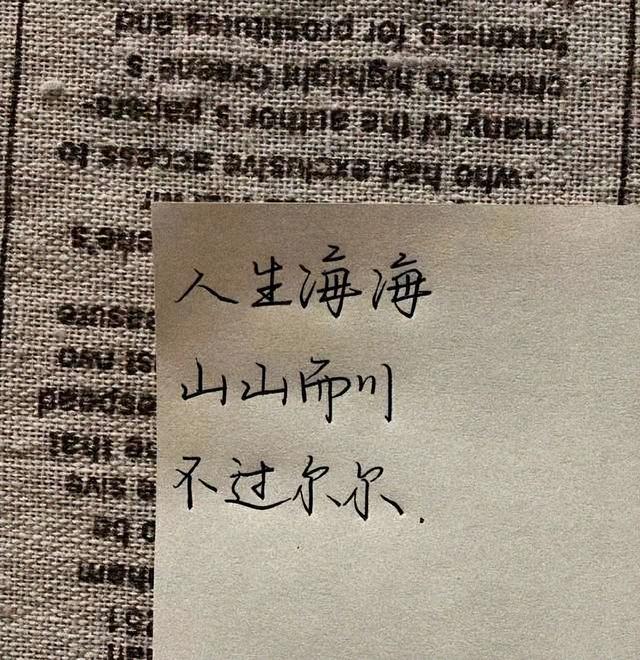 who had exclusive access to
many of the author's papers-
chose to highlight Greene's
fondness for prostitutes and
人生海海
山山而川
不过尔尔.